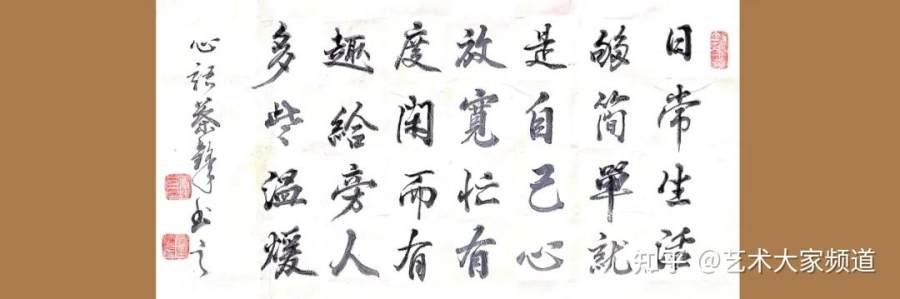 日常生活
够简單就
是自己心
放寬忙有
度闲而有
趣給旁人
多些温煖
心語书之
知乎 @艺术大家频道